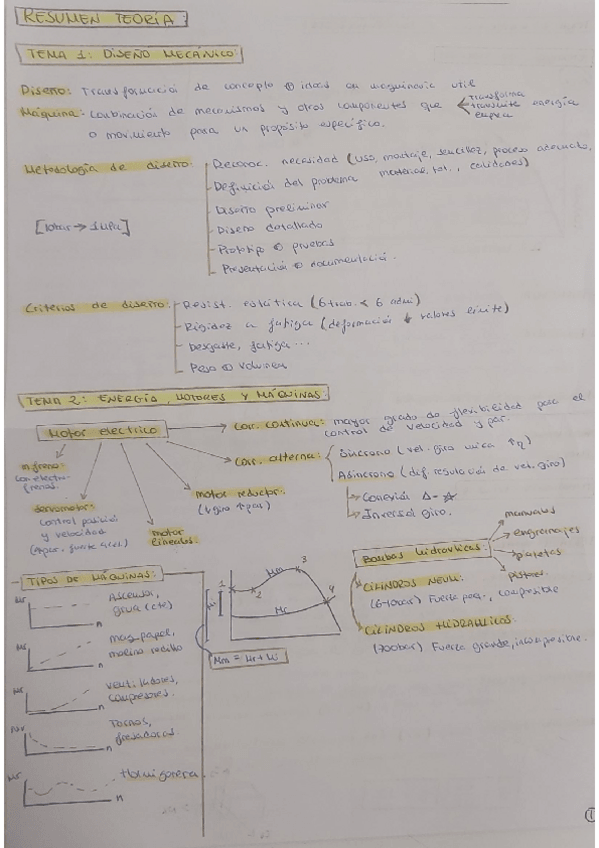 RESUMEN TEORÍA:
TEMA 1: DISEÑO MECÁNICO:
Diseño: Transformación de concepto o ideas en maquinaria util
Máquina: Combinación de mecanismos y otros componentes que transforma
transmite energía
emplea
o movimiento para un propósito específico.
Metodología de diseño:
- Reconoc. necesidad (uso, montaje, sencillez, proceso adecuado,
material, tol., calidades)
- Definición del problema
- Diseño preliminar
- Diseño detallado
- Prototipo o pruebas
- Presentación o documentación.
[10bar → 1MPa]
Criterios de diseño:
- Resist. estática (σtrab. < σ admi)
- Rigidez a fatiga (deformación ↓ valores límite)
- Desgaste, fatiga ...
- Peso o volumen
TEMA 2: ENERGÍA, MOTORES Y MÁQUINAS:
Motor electrico
corr. continua: mayor grado de flexibilidad para el
control de velocidad y par.
corr. alterna:
Síncrono (vel. giro unica ↑η)
Asíncrono (dif. regulación de vel. giro)
Conexión Δ-
Inversor giro.
con electro-
frenos.
servomotor:
control posición
y velocidad
motor
lineales.
motor reductor:
(↓giro ↑par)
Bombas hidraúlicas:
manuales
engranajes
paletas
pistones
CILINDROS NEUM:
(6-10bar) Fuerza peq., compresible
CILINDROS HIDRAULICOS:
(700bar) Fuerza grande, incompresible.
TIPOS DE MÁQUINAS:
Mr
n
Ascensor,
grua (cte)
Mr
n
maq. papel,
molino rodillo
Mr
n
ventiladores,
compresores.
Mr
n
Tornos,
fresadoras.
Mr
n
Hormigonera
1
2
3
4
Mm
Mr
Mm = Mr + Mi
1